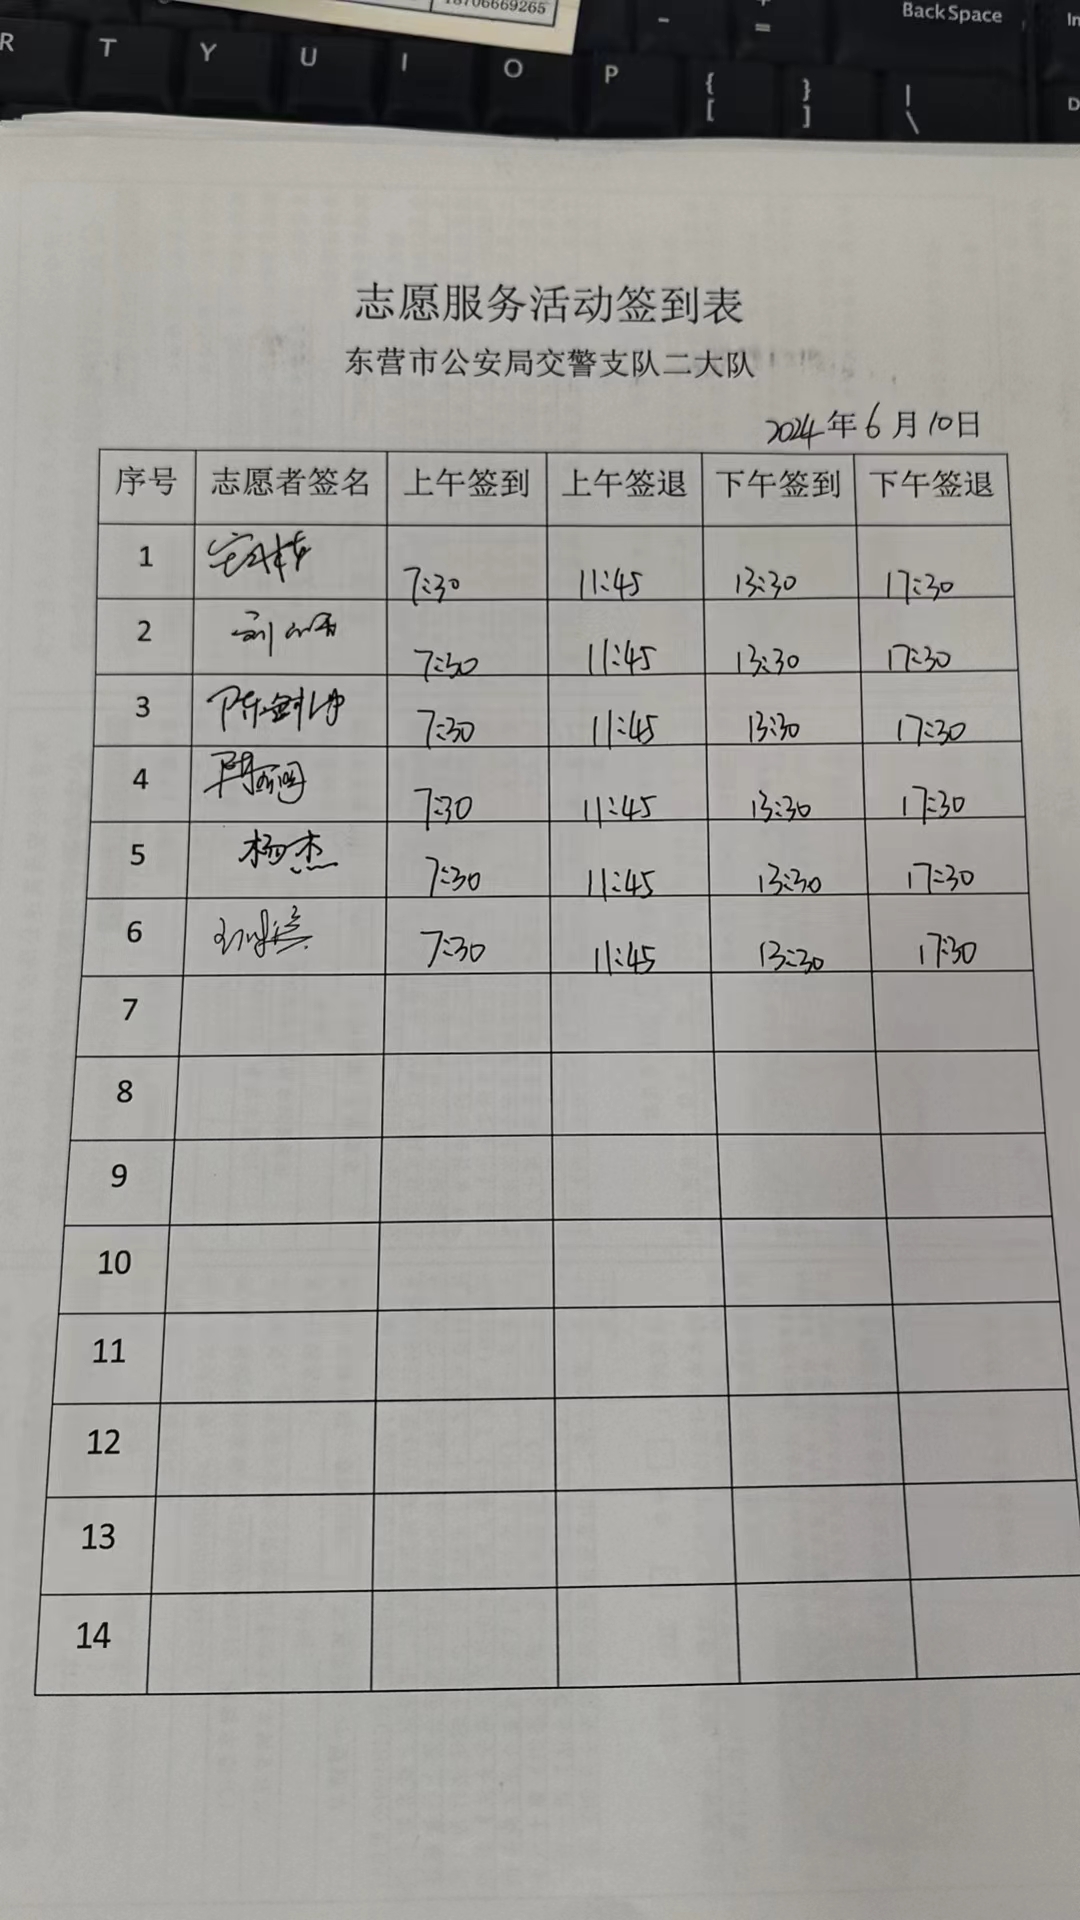 18706669265
-
+
=
BackSpace
In
R T Y U I O P { [ } ] | \ D
志愿服务活动签到表
东营市公安局交警支队二大队
2024年6月10日
序号 志愿者签名 上午签到 上午签退 下午签到 下午签退
1 7:30 11:45 13:30 17:30
2 7:30 11:45 13:30 17:30
3 7:30 11:45 13:30 17:30
4 7:30 11:45 13:30 17:30
5 杨杰 7:30 11:45 13:30 17:30
6 7:30 11:45 13:30 17:30
7
8
9
10
11
12
13
14